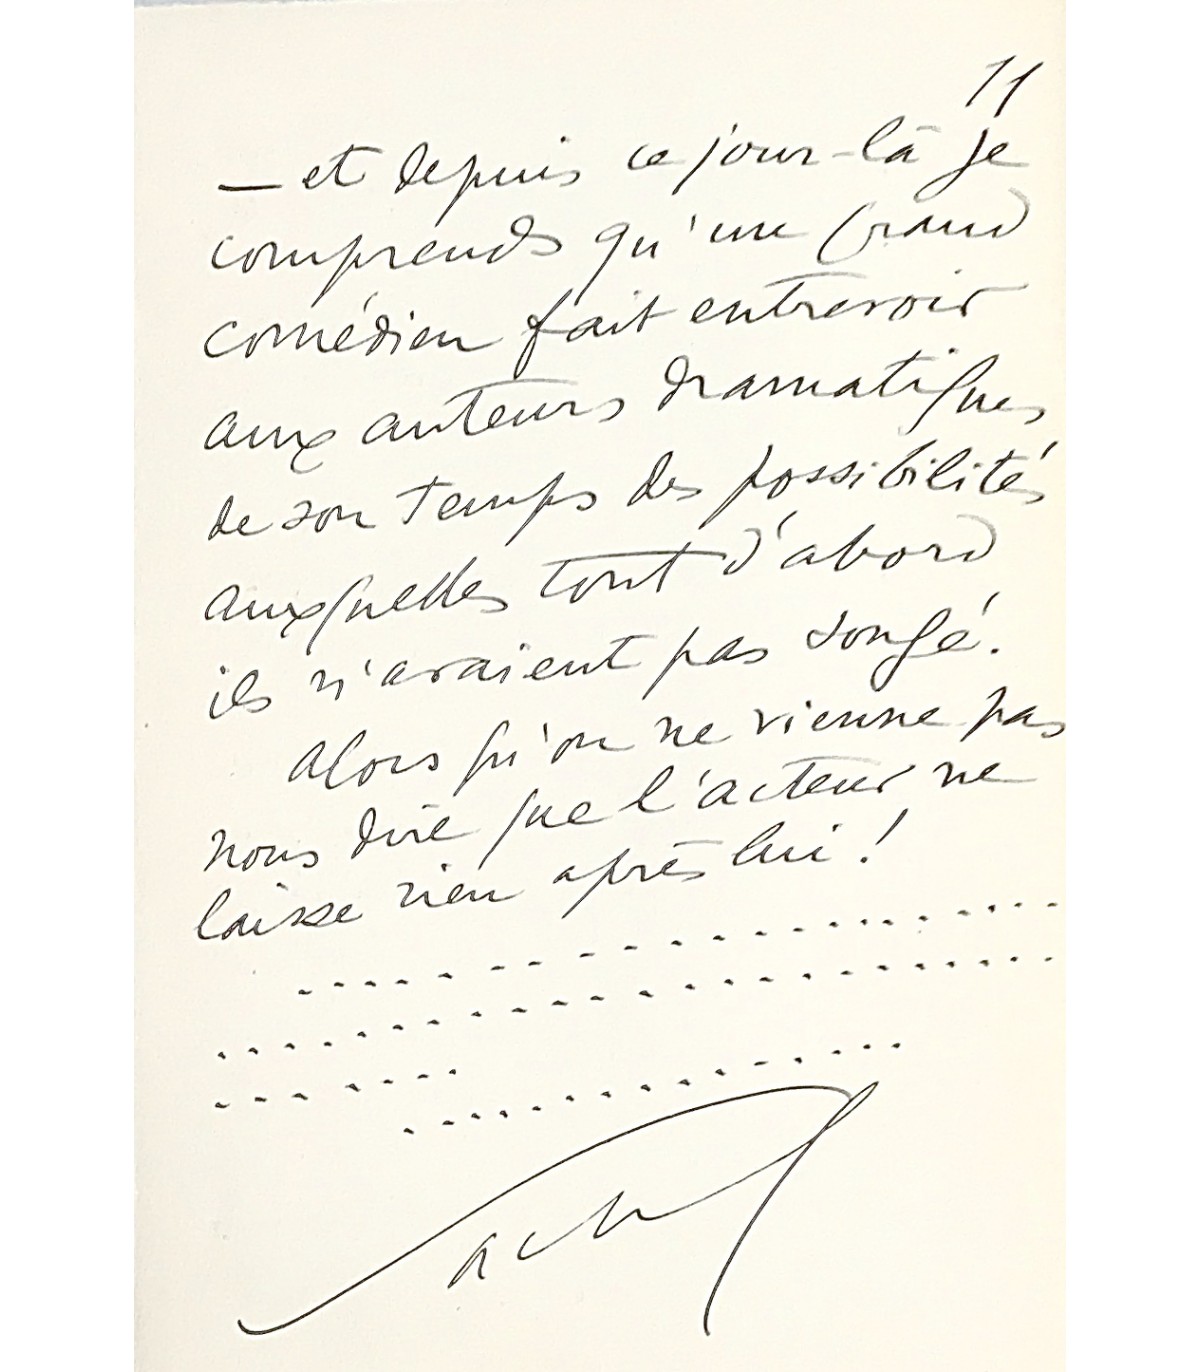 11
— et depuis ce jour-là je
comprends qu'un grand
comédien fait entrevoir
aux auteurs dramatiques
de son temps des possibilités
auxquelles tout d'abord
ils n'avaient pas songé.
Alors qu'on ne vienne pas
nous dire que l'acteur ne
laisse rien après lui !
. . . . . . . . . . . . . . . . . . . .
. . . . . . . . . . . . . . . . . . . . . . .
. . . . . . . .
. . . . . . . . . . . . . . . .
Sacha